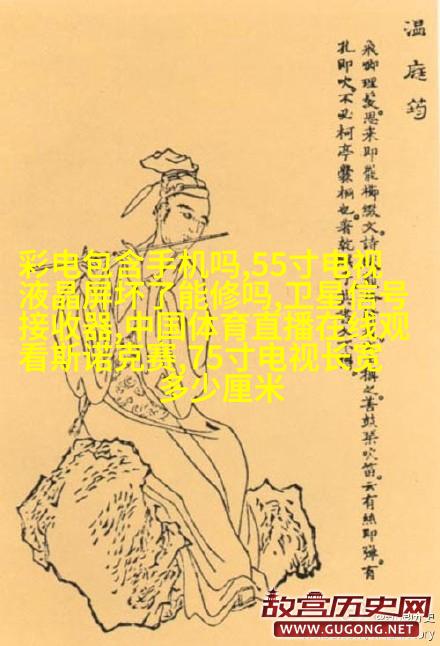 温庭筠
飛卿理髪思来即罷櫛綴文詩
扎即吹不必柯亭爨桐也著乾
稱之善鼓琴吹笛云有絲即彈有
彩电包含手机吗,55寸电视
液晶屏坏了能修吗,卫星信号
接收器,中国体育直播在线观
看斯诺克赛,75寸电视长宽
多少厘米
故宫历史网
WWW.GUGONG.NET